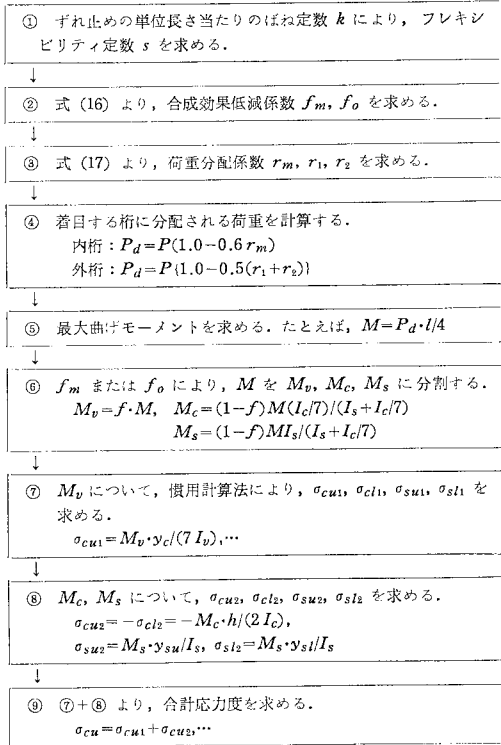 ① ずれ止めの単位長さ当たりのばね定数 k により, フレキシ
ビリティ定数 s を求める.
↓
② 式 (16) より, 合成効果低減係数 fm, fo を求める.
↓
③ 式 (17) より, 荷重分配係数 rm, r1, r2 を求める.
↓
④ 着目する桁に分配される荷重を計算する.
内桁：Pd=P(1.0−0.6 rm)
外桁：Pd=P{1.0−0.5(r1+r2)}
↓
⑤ 最大曲げモーメントを求める. たとえば, M=Pd・l/4
↓
⑥ fm または fo により, M を Mv, Mc, Ms に分割する.
Mv=f・M, Mc=(1−f)M(Ic/7)/(Is+Ic/7)
Ms=(1−f)MIs/(Is+Ic/7)
↓
⑦ Mv について, 慣用計算法により, σcu1, σcl1, σsu1, σsl1 を
求める.
σcu1=Mv・yc/(7 Iv),…
↓
⑧ Mc, Ms について, σcu2, σcl2, σsu2, σsl2 を求める.
σcu2=−σcl2=−Mc・h/(2 Ic),
σsu2=Ms・ysu/Is, σsl2=Ms・ysl/Is
↓
⑨ ⑦+⑧ より, 合計応力度を求める.
σcu=σcu1+σcu2,…